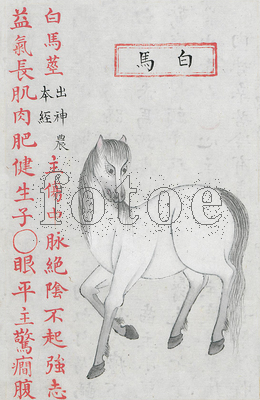 白馬
白馬莖
出神農
本經
主傷中脉絕陰不起強志
益氣長肌肉肥健生子○眼平主驚癇腹
fotoe